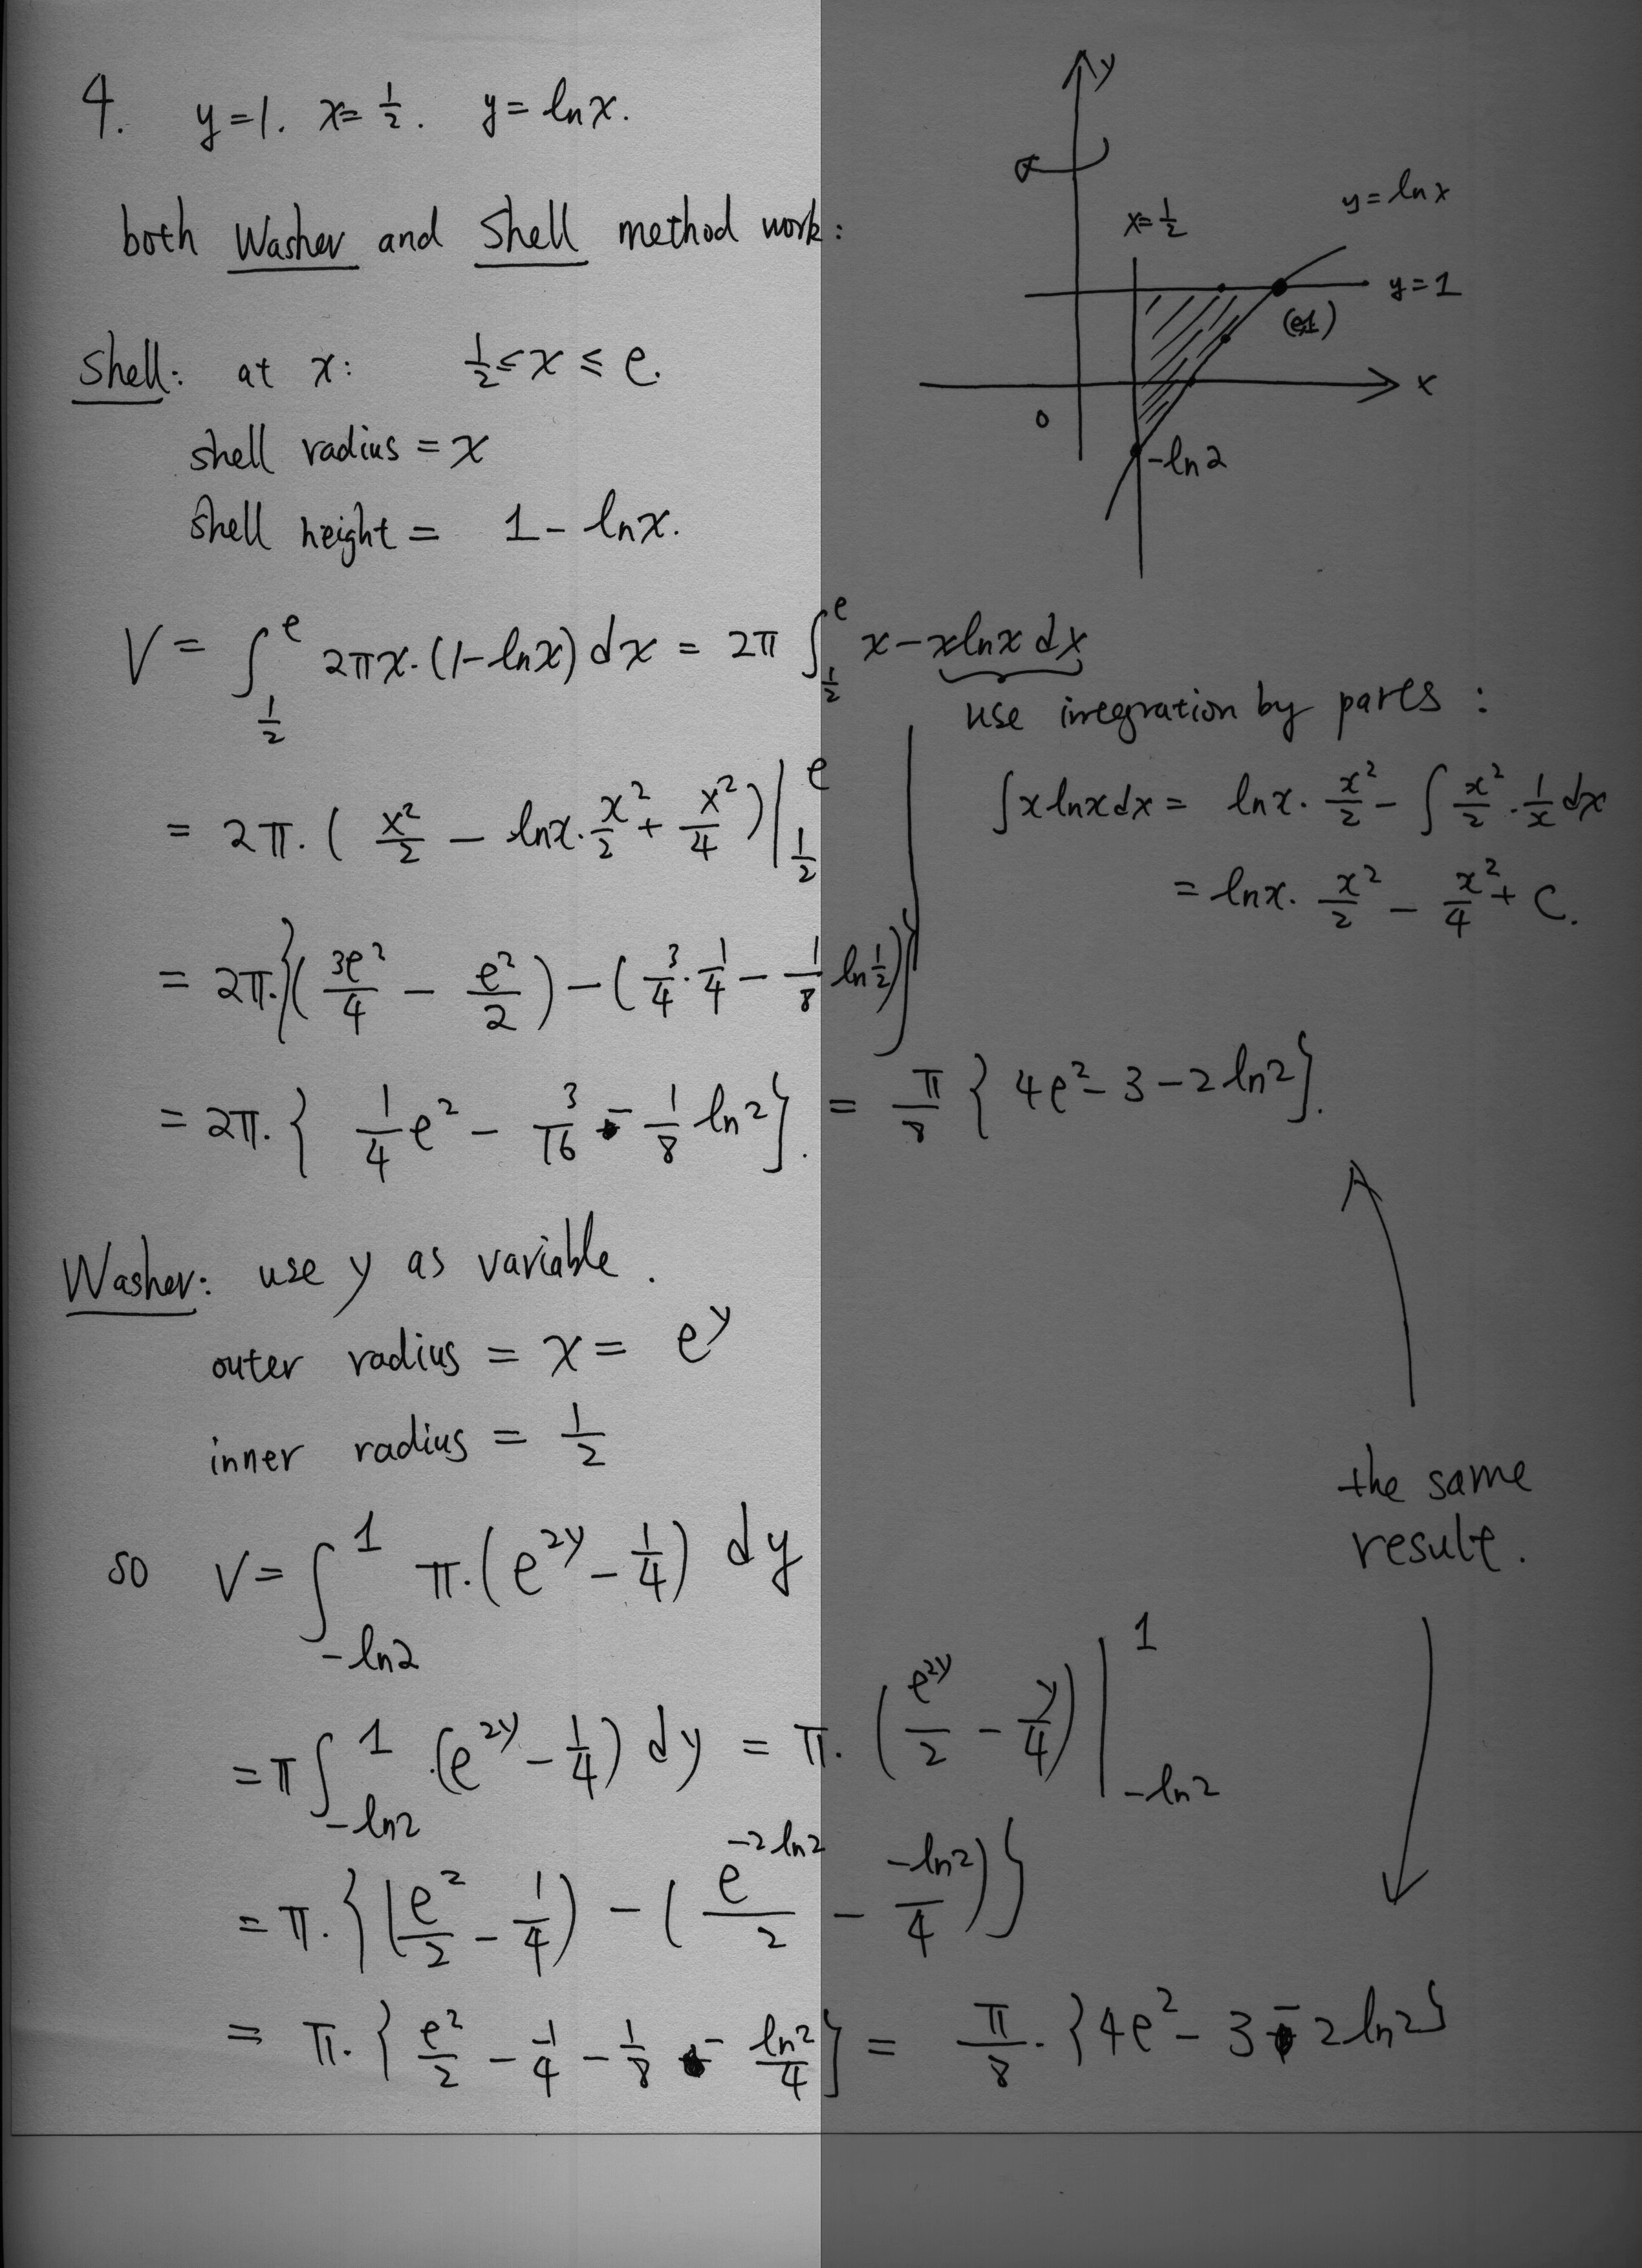 4. y=1. x=1/2. y=lnx.
both Washer and Shell method work:
y
x=1/2
y=lnx
y=1
(e,1)
x
0
-ln2
Shell: at x: 1/2≤x≤e.
shell radius = x
shell height = 1-lnx.
V = ∫_{1/2}^{e} 2πx·(1-lnx)dx = 2π ∫_{1/2}^{e} x-xlnx dx
use integration by parts :
∫xlnxdx = lnx·x²/2 - ∫x²/2·1/x dx
= lnx·x²/2 - x²/4 + C.
= 2π·(x²/2 - lnx·x²/2 + x²/4)|_{1/2}^{e}
= 2π·{(3e²/4 - e²/2)-(3/4·1/4 - 1/8 ln1/2)}
= 2π·{1/4e² - 3/16 - 1/8 ln2}. = π/8{4e²-3-2ln2}.
Washer: use y as variable.
outer radius = x = e^y
inner radius = 1/2
the same
result.
so V= ∫_{-ln2}^{1} π·(e^{2y}-1/4) dy
=π∫_{-ln2}^{1}·(e^{2y}-1/4)dy = π·(e^{2y}/2 - y/4)|_{-ln2}^{1}
=π·{(e²/2 - 1/4)-(e^{-2ln2}/2 - -ln2/4)}
= π·{e²/2 - 1/4 - 1/8 - ln2/4} = π/8·{4e²-3-2ln2}